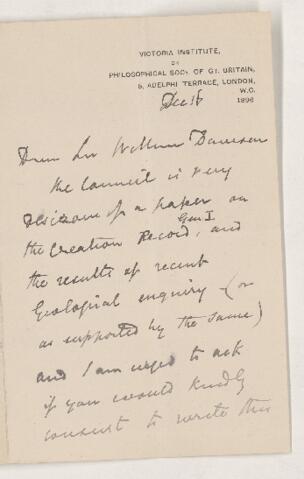 VICTORIA INSTITUTE,
OR
PHILOSOPHICAL SOCY. OF GT. BRITAIN,
8, ADELPHI TERRACE, LONDON,
W.C.
Dec 16 1896
Dear Sir William Dawson
the Council is very
desirous of a paper on
the Creation Record, Gen I and
the results of recent
Geological enquiry - (or
as supported by the same)
and I am urged to ask
if you would kindly
consent to write this